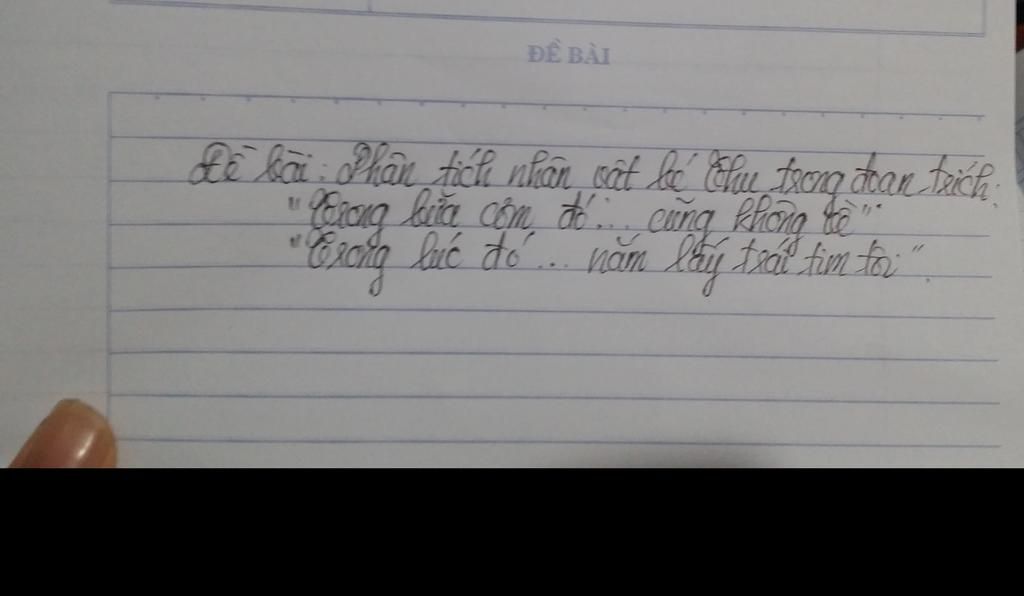 ĐỀ BÀI
Đề bài: Phân tích nhân vật bé Thu trong đoạn trích:
"Trong bữa cơm đó... cũng không về"
"Trong lúc đó... nắm lấy trái tim tôi".